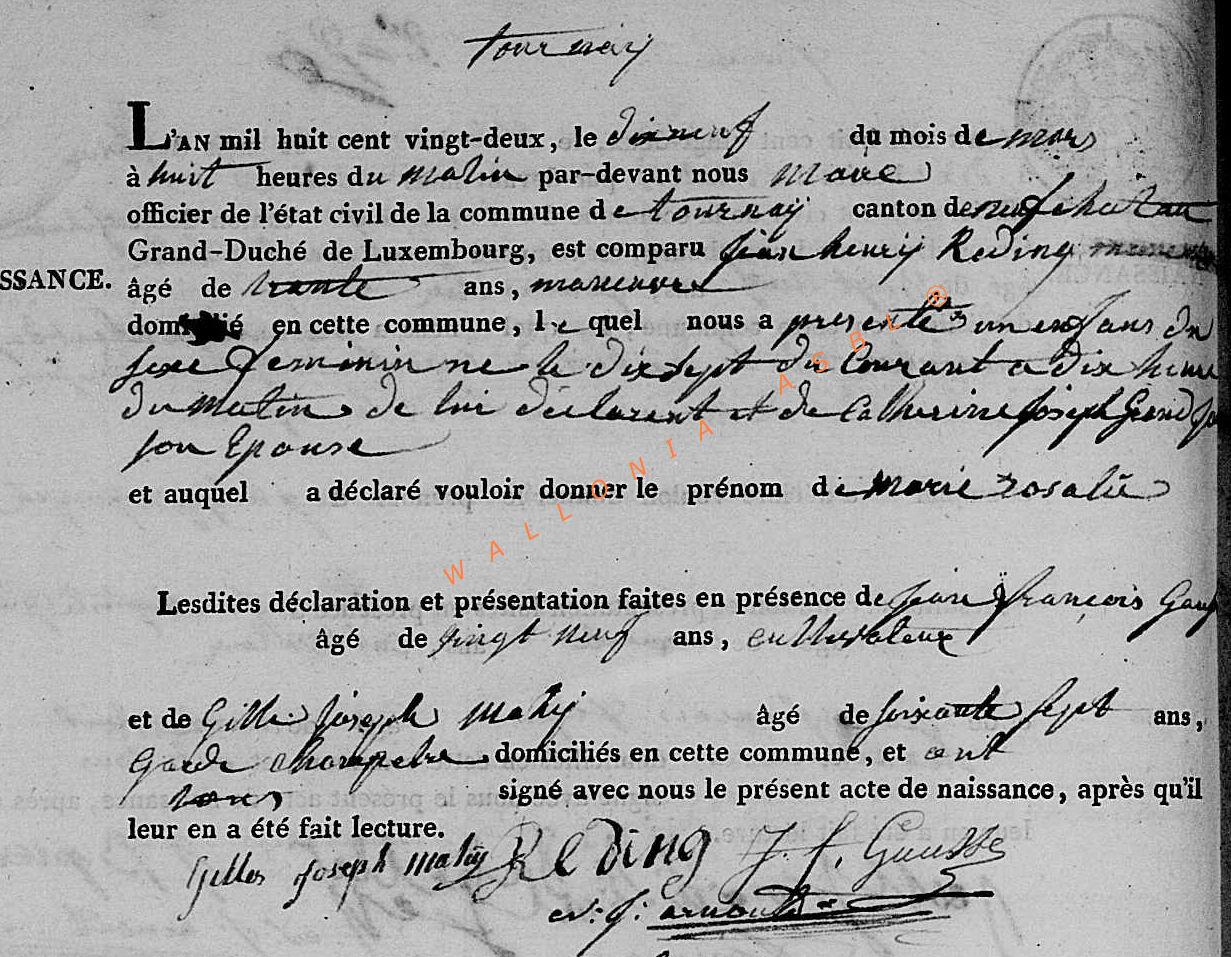 tournay
L'AN mil huit cent vingt-deux, le dixneuf du mois de mars
à huit heures du matin par-devant nous
officier de l'état civil de la commune de tournay canton de neufchateau
Grand-Duché de Luxembourg, est comparu jean henry Reding
SSANCE. âgé de trante ans, maneuvre
domicilié en cette commune, le quel nous a presenté un enfans du
sexe feminin ne le dix sept du Courant a dix heure
du matin de lui déclarent et de Catherine joseph Grand
son Epouse
et auquel a déclaré vouloir donner le prénom de Marie rosalie
Lesdites déclaration et présentation faites en présence de jean françois
âgé de vingt neuf ans, cultivateur
et de Gille joseph Mahy âgé de soixante sept ans,
Garde champetre domiciliés en cette commune, et ont
tous signé avec nous le présent acte de naissance, après qu'il
leur en a été fait lecture.
Gilles joseph mahy Reding J. f. Gausse
WALLONIA ASBL ®